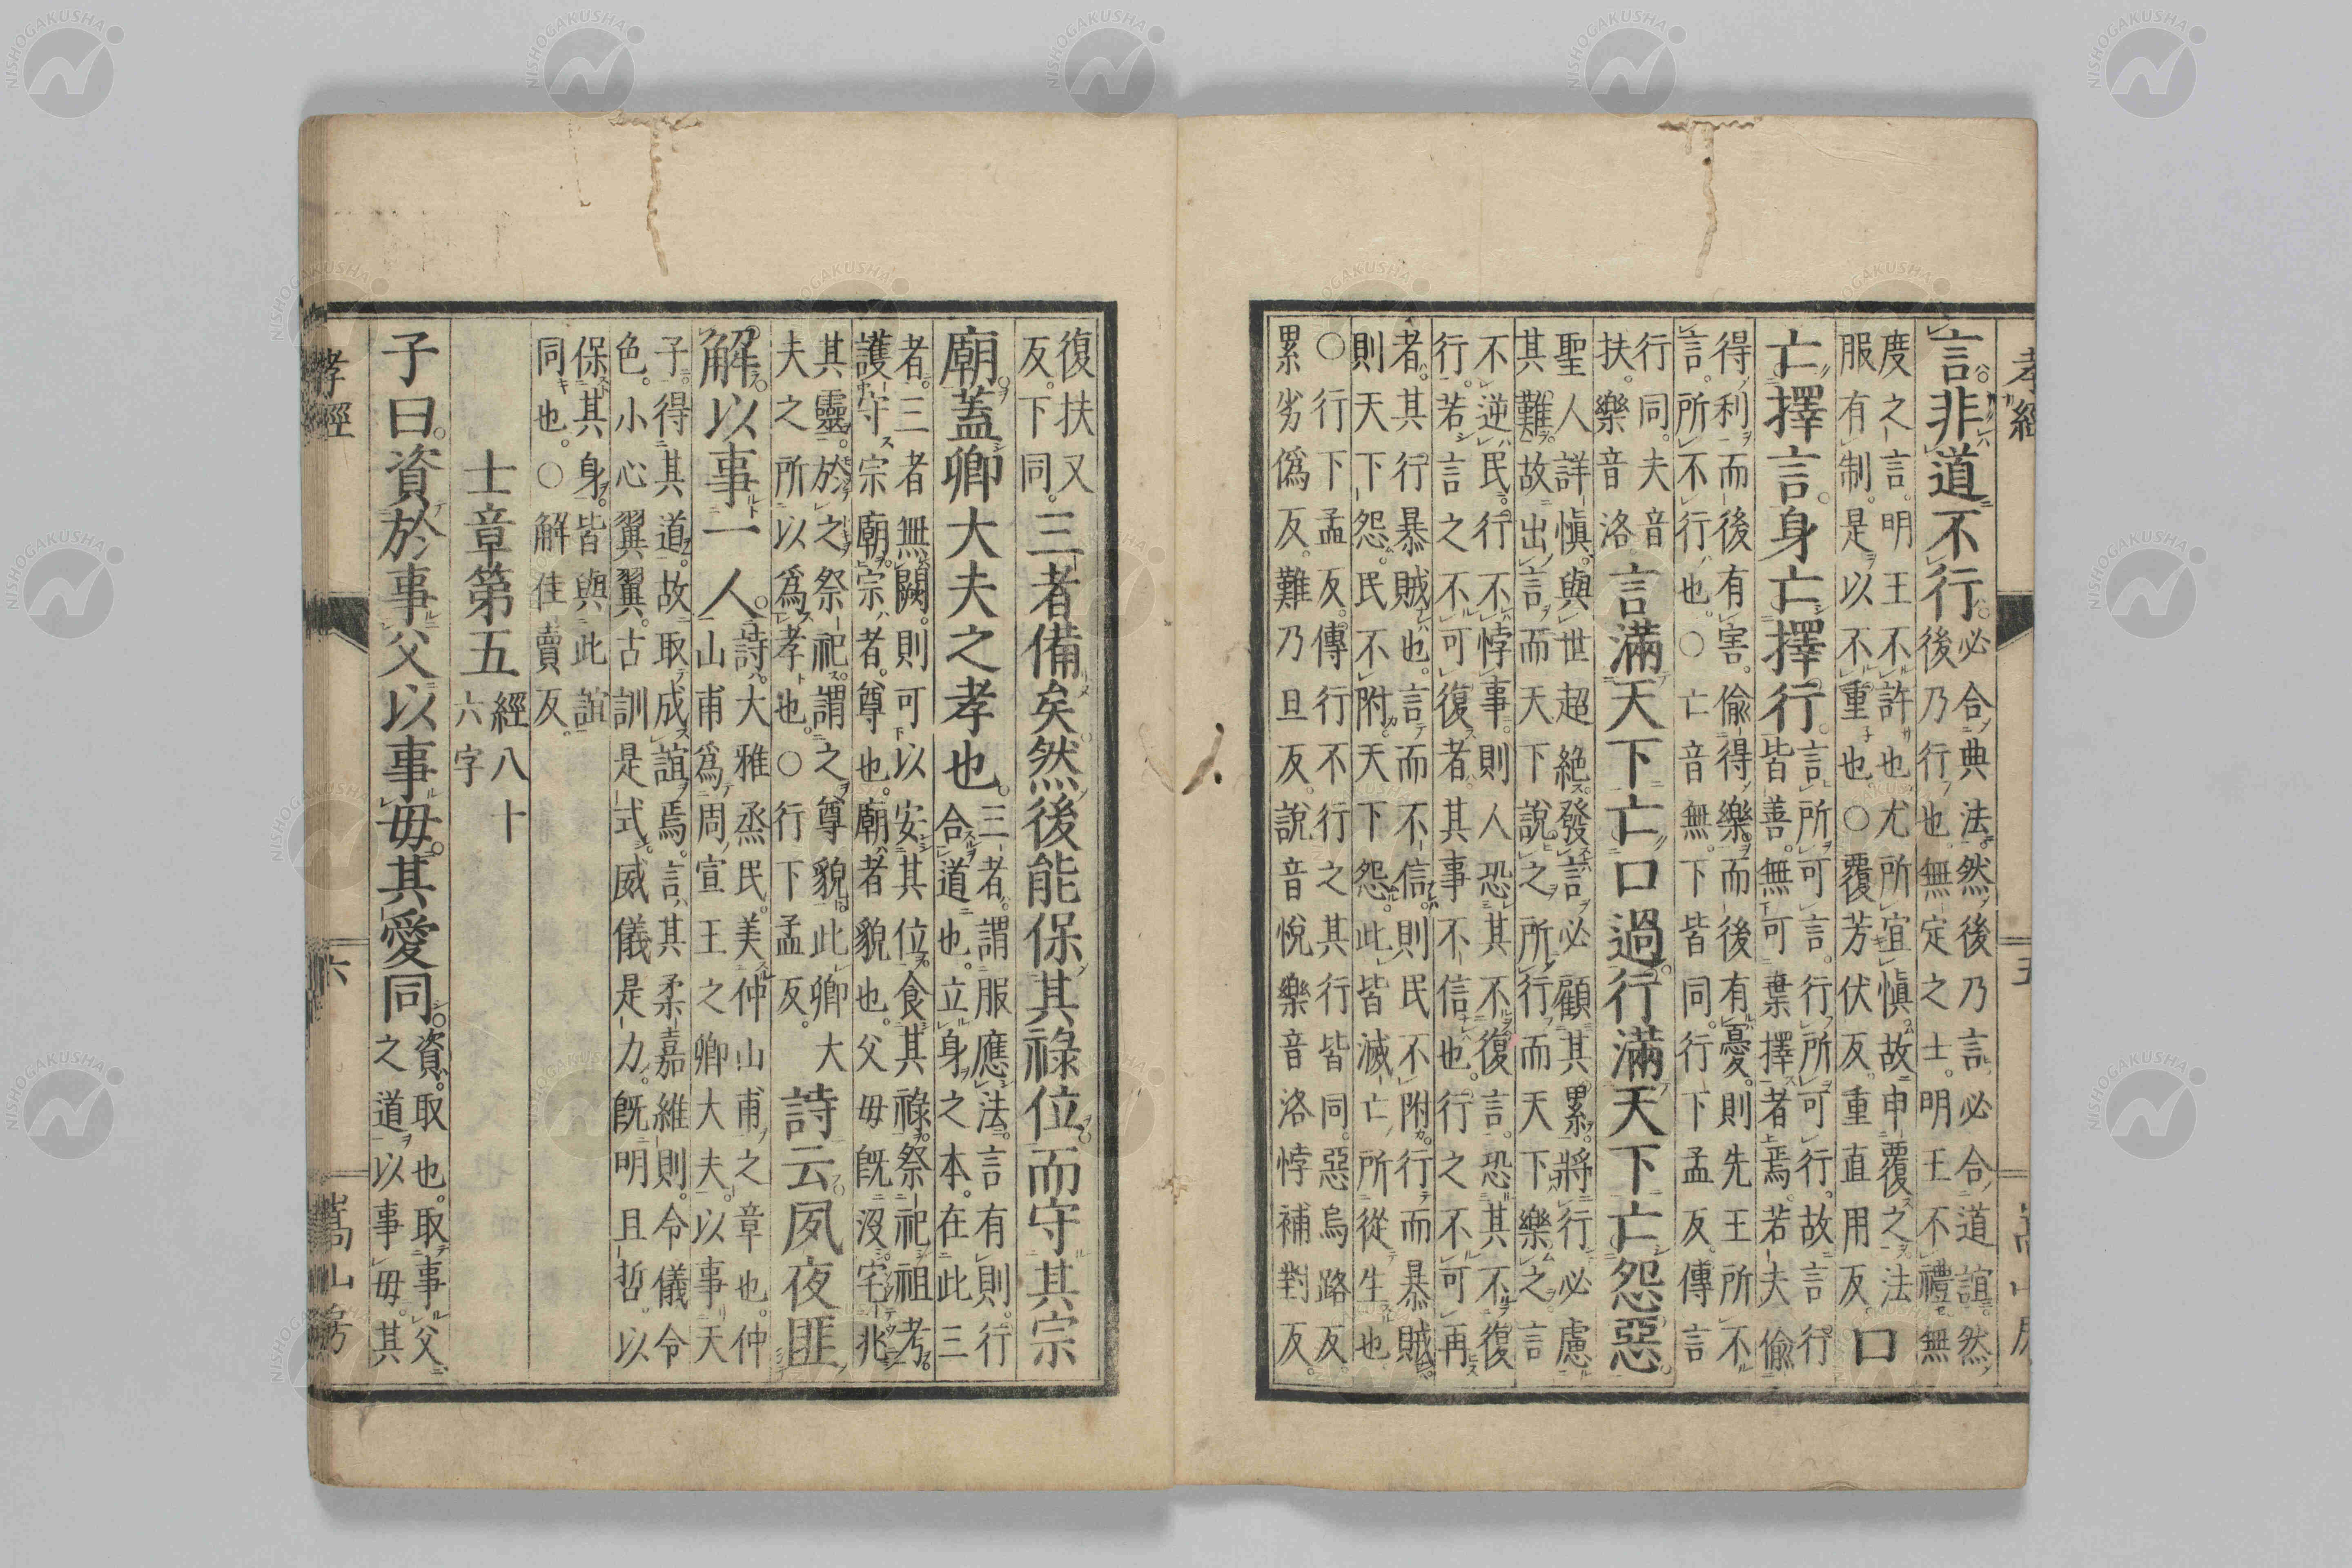 孝經
五
嵩山房
言非道不行
必合典法然後乃言必合道誼然
後乃行也無定之士明王不禮無
度之言明王不許也尤所宜愼故申覆之法
服有制是以不重也○覆芳伏反重直用反
口
亡擇言身亡擇行
言所可言行所可行故言行
皆善無可棄擇者焉若夫偷
得利而後有害偷得樂而後有憂則先王所不
言所不行也○亡音無下皆同行下孟反傳言
行同夫音
扶樂音洛
言滿天下亡口過行滿天下亡怨惡
聖人詳愼與世超絕發言必顧其累將行必慮
其難故出言而天下說之所行而天下樂之言
不逆民行不悖事則人恐其不復言恐其不復
行若言之不可復者其事不信也行之不可再
者其行暴賊也言而不信則民不附行而暴賊
則天下怨民不附天下怨此皆滅亡所從生也
○行下孟反傳行不行之其行皆同惡烏路反
累劣僞反難乃旦反說音悅樂音洛悖補對反
復扶又
反下同
三者備矣然後能保其祿位而守其宗
廟蓋卿大夫之孝也
三者謂服應法言有則行
合道也立身之本在此三
者三者無闕則可以安其位食其祿祭祀祖考
護守宗廟宗者尊也廟者貌也父母既沒宅兆
其靈於之祭祀謂之尊貌此卿大
夫之所以爲孝也○行下孟反
詩云夙夜匪
解以事一人
詩大雅烝民美仲山甫之章也仲
山甫爲周宣王之卿大夫以事天
子得其道故取成誼焉言其柔嘉維則令儀令
色小心翼翼古訓是式威儀是力既明且哲以
保其身皆與此誼
同也○解佳賣反
士章第五
經八十
六字
子曰資於事父以事母其愛同
資取也取事父
之道以事母其
孝經
六
嵩山房